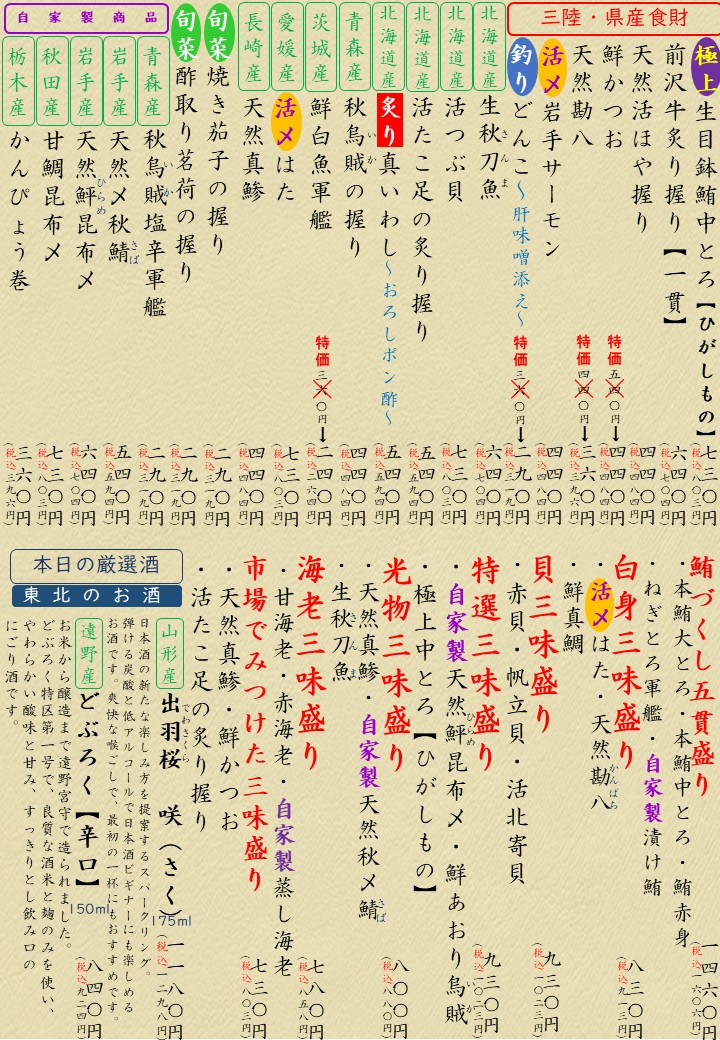 三陸・県産食財
極上 生目鉢鮪中とろ【ひがしもの】 七三〇円 (税込八〇三円)
前沢牛炙り握り【一貫】 六四〇円 (税込七〇四円)
天然活ほや握り 四四〇円 (税込四八四円)
鮮かつお 特価 五四〇円→四四〇円 (税込四八四円)
天然勘八 特価 四四〇円→三六〇円 (税込三九六円)
活〆 岩手サーモン 四四〇円 (税込四八四円)
釣り どんこ～肝味噌添え～ 特価 三六〇円→二九〇円 (税込三一九円)
北海道産 生秋刀魚 さんま 六四〇円 (税込七〇四円)
北海道産 活つぶ貝 七三〇円 (税込八〇三円)
北海道産 活たこ足の炙り握り 五四〇円 (税込五九四円)
北海道産 炙り 真いわし～おろしポン酢～ 五四〇円 (税込五九四円)
青森産 秋烏賊の握り いか 四四〇円 (税込四八四円)
茨城産 鮮白魚軍艦 特価 三六〇円→二四〇円 (税込二六四円)
愛媛産 活〆 はた 七三〇円 (税込八〇三円)
長崎産 天然真鯵 四四〇円 (税込四八四円)
旬菜 焼き茄子の握り 二九〇円 (税込三一九円)
旬菜 酢取り茗荷の握り 二九〇円 (税込三一九円)
自家製商品
青森産 秋烏賊塩辛軍艦 いか 二九〇円 (税込三一九円)
岩手産 天然〆秋鯖 さば 五四〇円 (税込五九四円)
岩手産 天然鮃昆布〆 ひらめ 六四〇円 (税込七〇四円)
秋田産 甘鯛昆布〆 七三〇円 (税込八〇三円)
栃木産 かんぴょう巻 三六〇円 (税込三九六円)
鮪づくし五貫盛り
・本鮪大とろ・本鮪中とろ・鮪赤身
・ねぎとろ軍艦・自家製漬け鮪
一四六〇円 (税込一六〇六円)
白身三味盛り
・活〆はた・天然勘八 かんぱち
・鮮真鯛
八三〇円 (税込九一三円)
貝三味盛り
・赤貝・帆立貝・活北寄貝
九三〇円 (税込一〇二三円)
特選三味盛り
・自家製天然鮃昆布〆・鮮あおり烏賊 ひらめ いか
・極上中とろ【ひがしもの】
九三〇円 (税込一〇二三円)
光物三味盛り
・天然真鯵・自家製天然秋〆鯖 さば
・生秋刀魚 さんま
八〇〇円 (税込八八〇円)
海老三味盛り
・甘海老・赤海老・自家製蒸し海老
七八〇円 (税込八五八円)
市場でみつけた三味盛り
・天然真鯵・鮮かつお
・活たこ足の炙り握り
七三〇円 (税込八〇三円)
本日の厳選酒
東北のお酒
山形産 出羽桜 咲(さく) でわさくら 175ml 一一八〇円 (税込一二九八円)
日本酒の新たな楽しみ方を提案するスパークリング。
弾ける炭酸と低アルコールで日本酒ビギナーにも楽しめる
お酒です。爽快な喉ごしで、最初の一杯にもおすすめです。
遠野産 どぶろく【辛口】 150ml 八四〇円 (税込九二四円)
お米から醸造まで遠野宮守で造られました。
どぶろく特区第一号で、良質な酒米と麹のみを使い、
やわらかい酸味と甘み、すっきりとし飲み口の
にごり酒です。